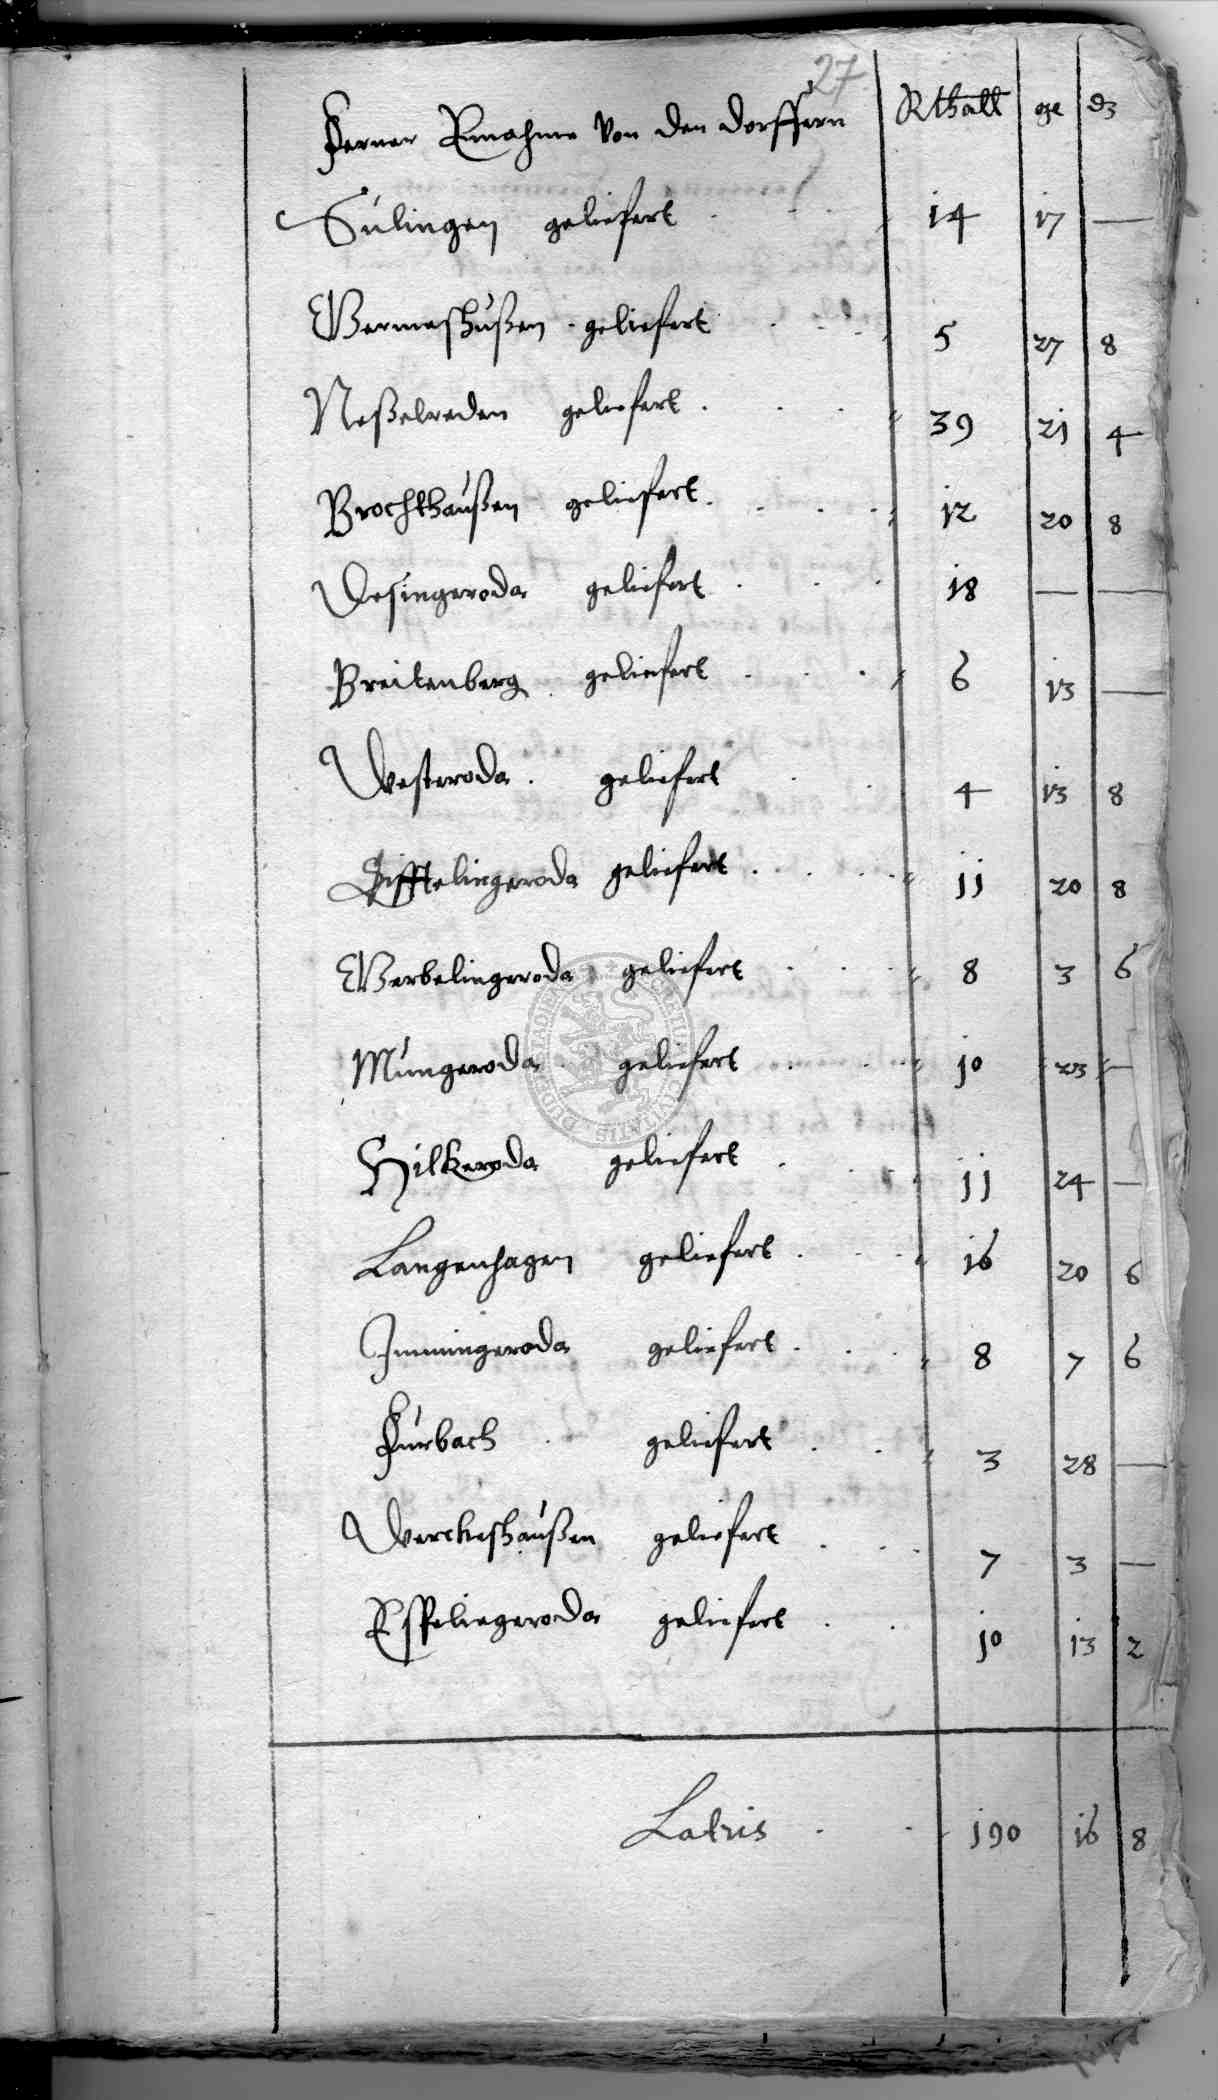 27
Ferner Einahme Von den dorffern Rthall ge dz
Sulingen geliefert 14 17 —
Wermeshußen geliefert 5 27 8
Neßelreden geliefert 39 21 4
Brochthaußen geliefert 12 20 8
Desingeroda geliefert 18 — —
Breitenberg geliefert 6 13 —
Westeroda geliefert 4 13 8
Tifftelingeroda geliefert 11 20 8
Werbelingeroda geliefert 8 3 6
Mungeroda geliefert 10 23 —
Hilkeroda geliefert 11 24 —
Langenhagen geliefert 16 20 6
Immingeroda geliefert 8 7 6
Furbach geliefert 3 28 —
Werckeshaußen geliefert 7 3 —
Espelingeroda geliefert 10 13 2
Latris 190 16 8